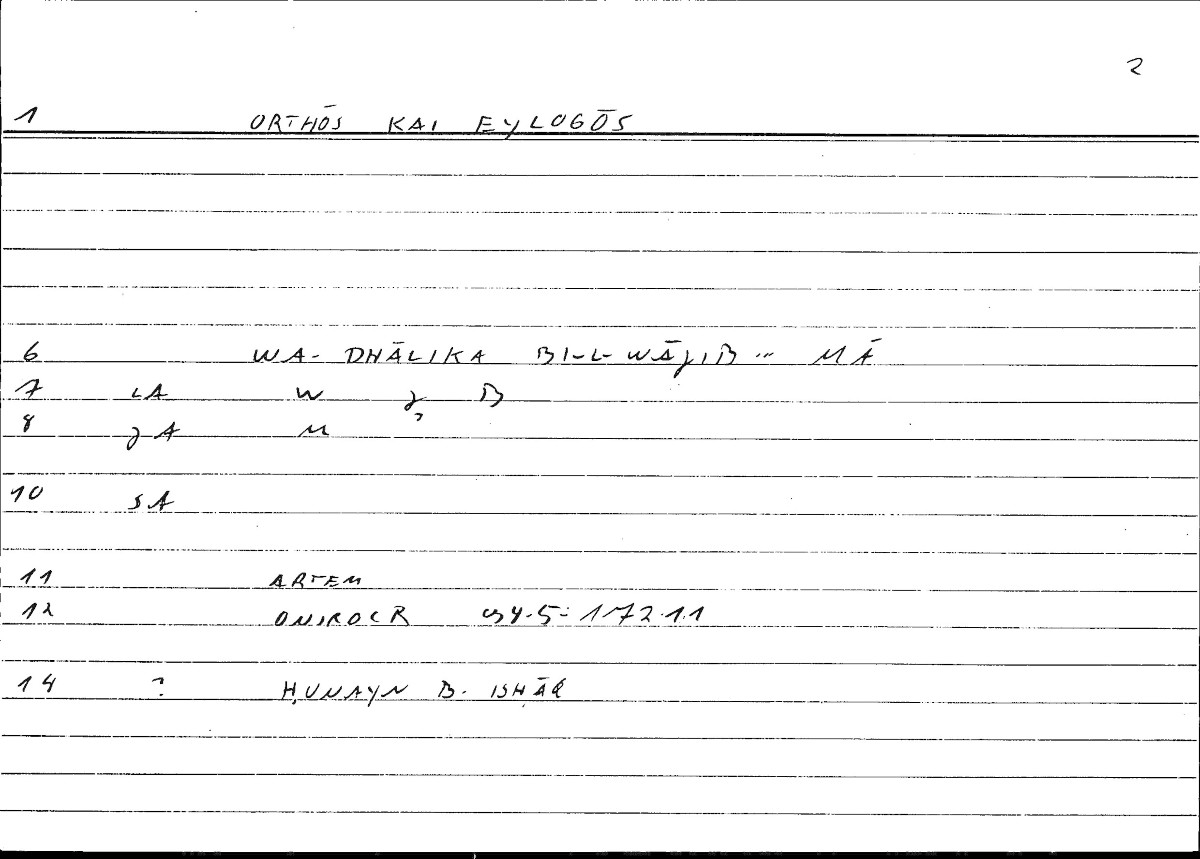 2
1 ORTHŌS KAI EYLOGŌS
6 WA- DHĀLIKA BI-L-WĀJIB .. MĀ
7 LA W J B
8 JA M
10 SA
11 ARTEM
12 ONIROCR 172.11
14 ? ḤUNAYN B. ISḤĀQ